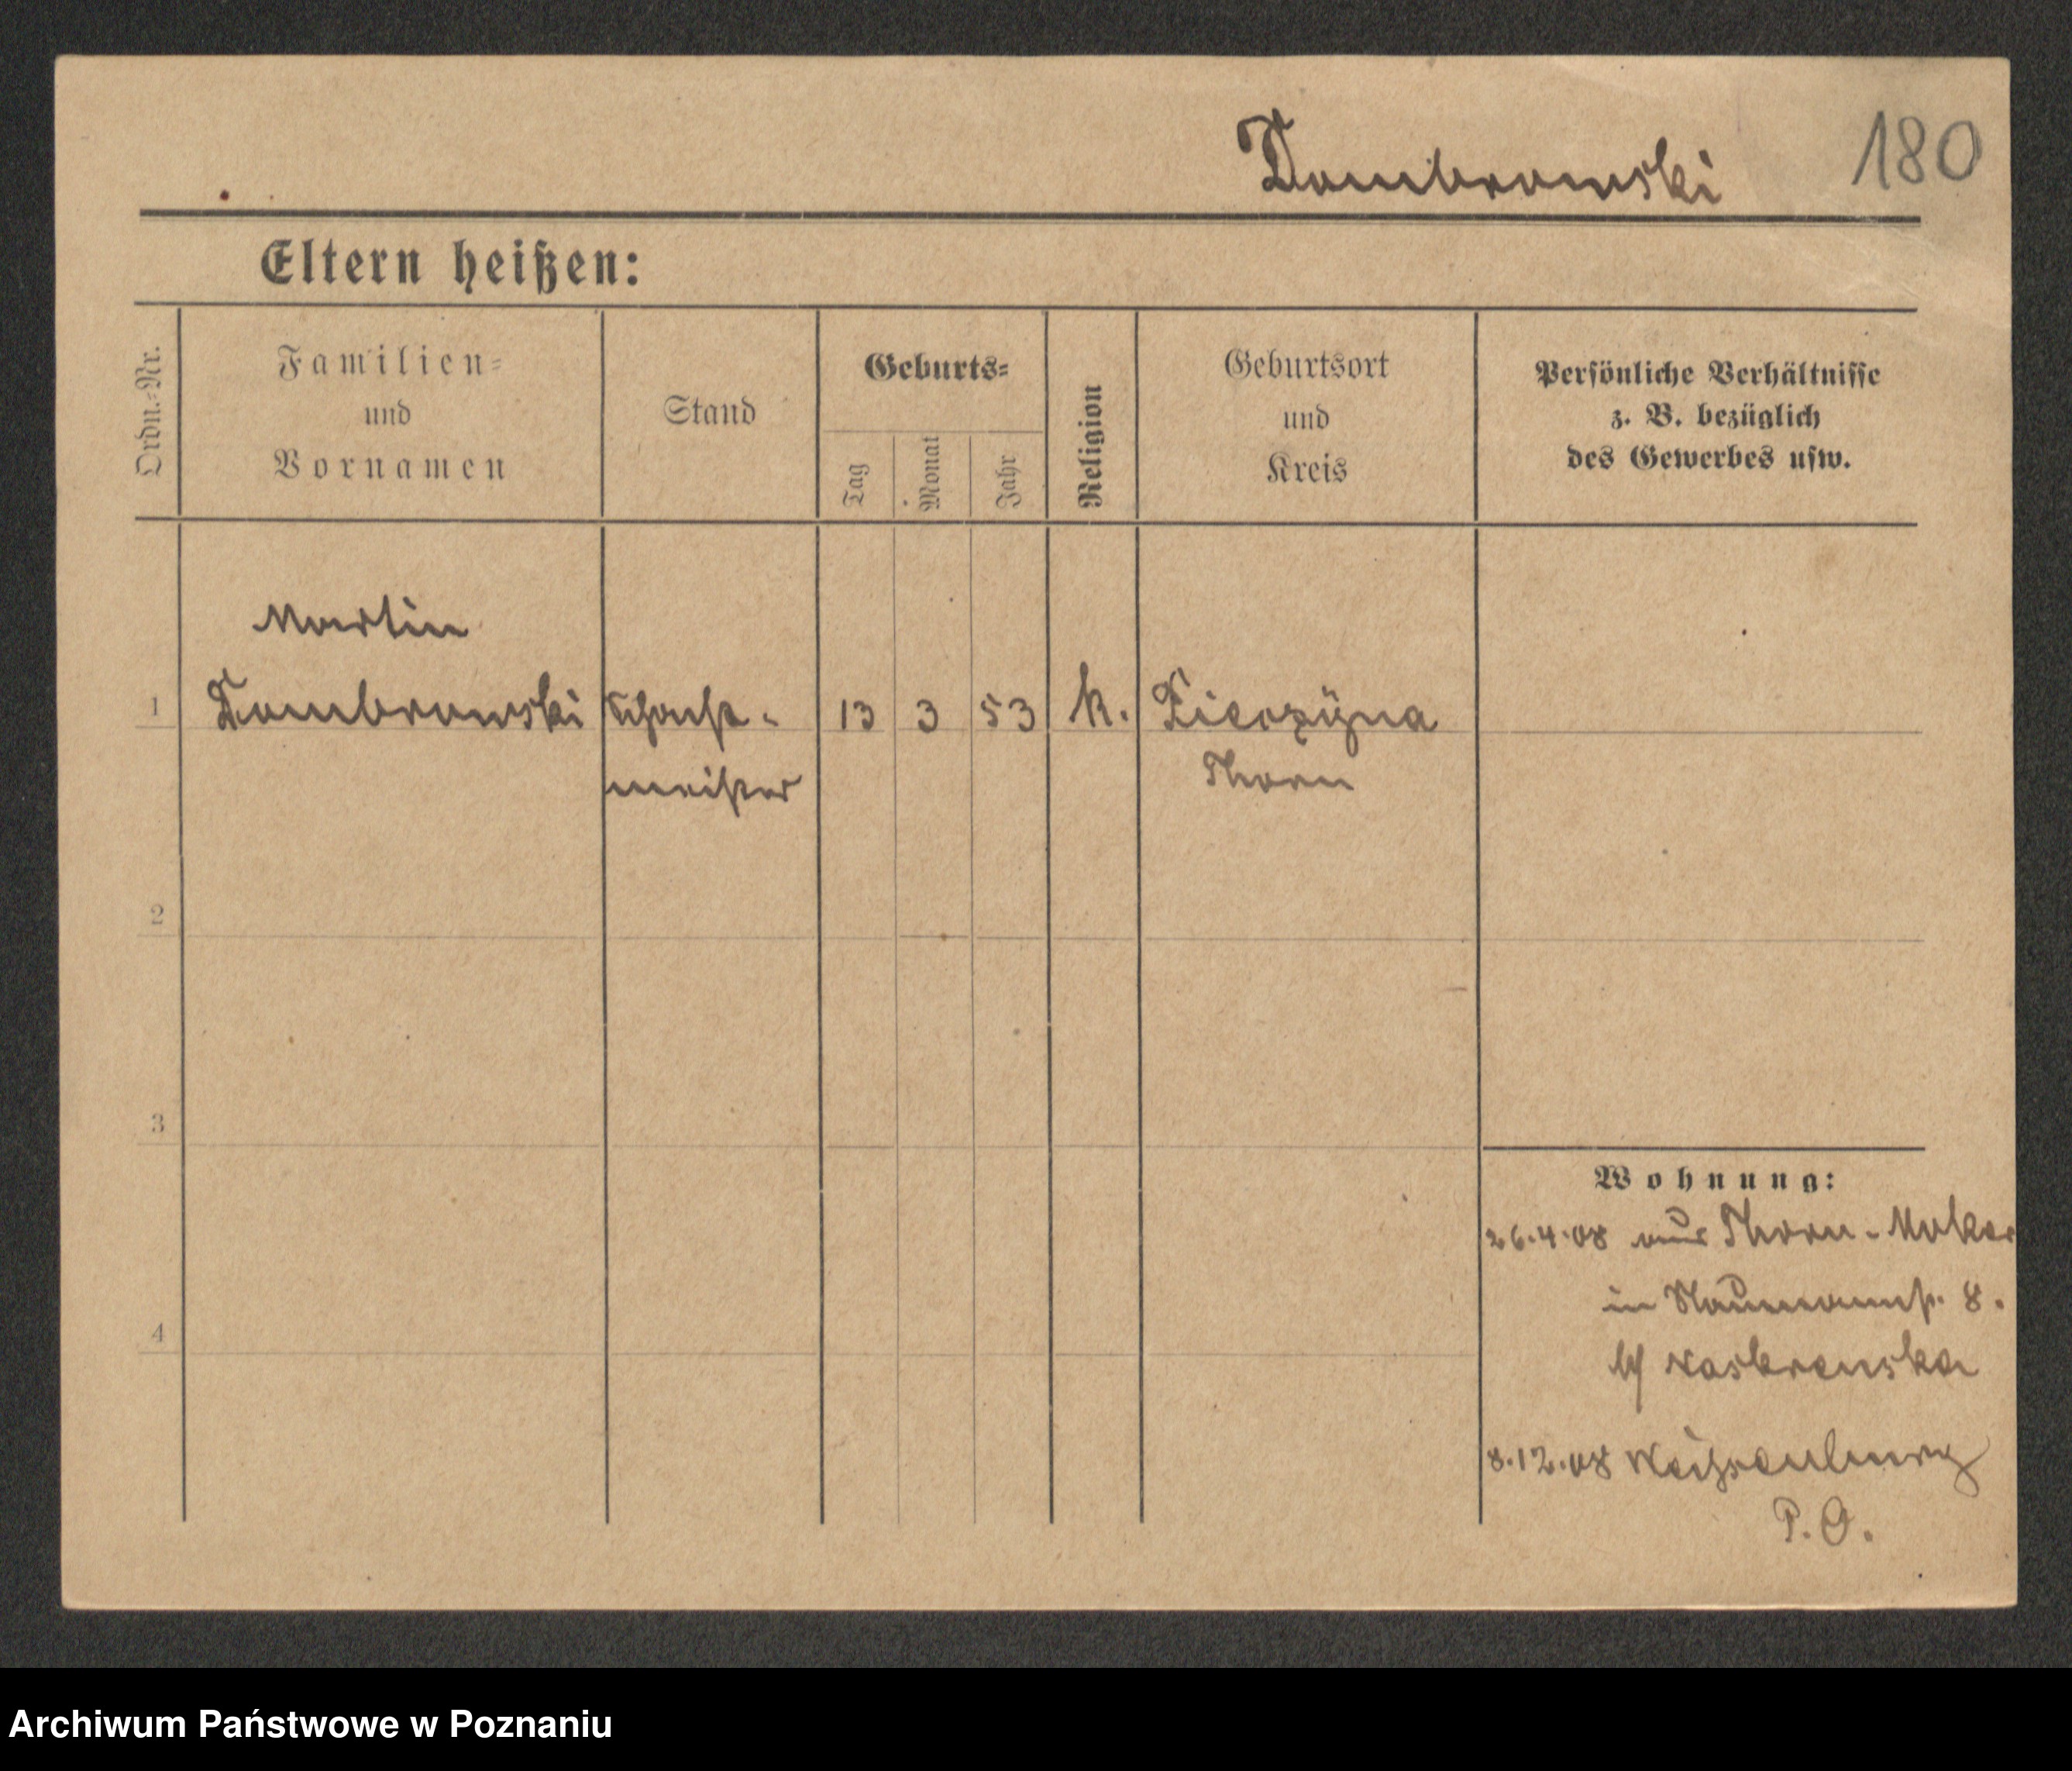 Dombrowski
180
Eltern heißen:
Ordn.-Nr.
Familien-
und
Vornamen
Stand
Geburts-
Tag
Monat
Jahr
Religion
Geburtsort
und
Kreis
Persönliche Verhältnisse
z. B. bezüglich
des Gewerbes usw.
Martin
1 Dombrowski 13 3 53 k.
meister Thorn
2
3
4
Wohnung:
26.4.08 aus Thorn-Mocker
in Naumannst. 8.
8.12.08 Weißenburg
P. O.
Archiwum Państwowe w Poznaniu